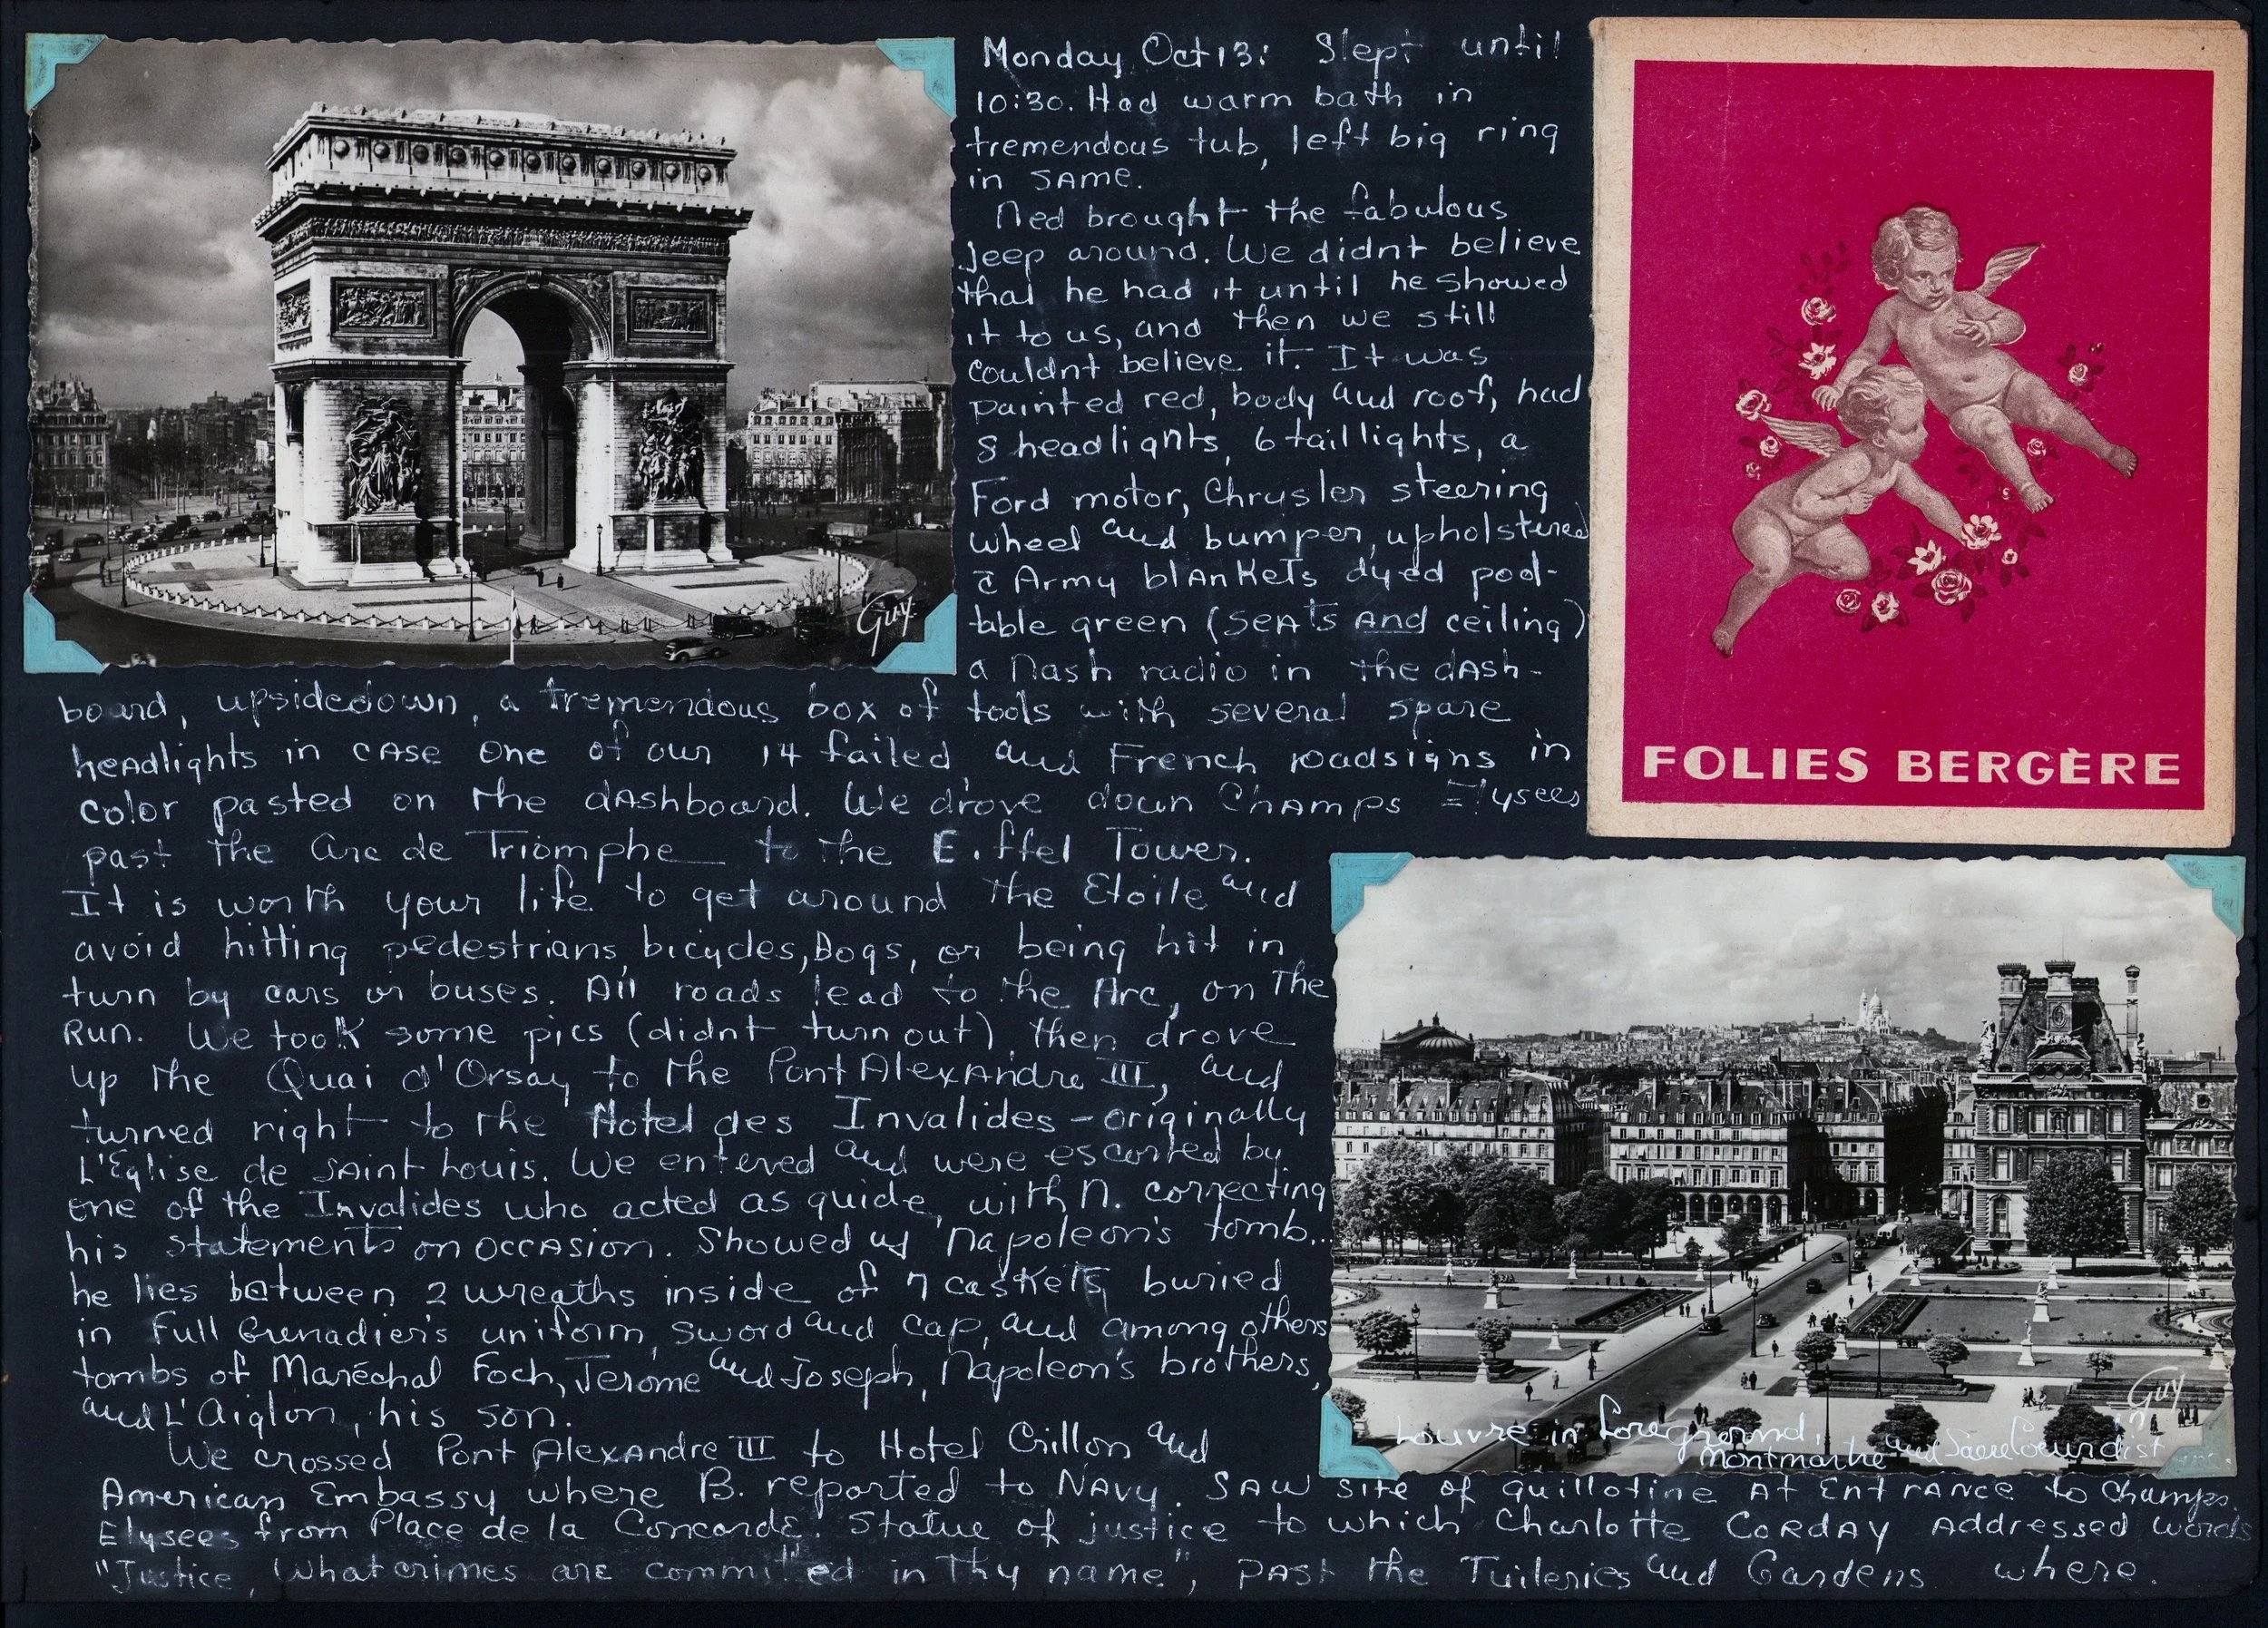 Monday Oct 13: Slept until
10:30. Had warm bath in
tremendous tub, left big ring
in SAME.
Ned brought the fabulous
Jeep around. We didnt believe
that he had it until he showed
it to us, and then we still
couldnt believe it. It was
painted red, body and roof, had
8 headlights, 6 taillights, a
Ford motor, Chrysler steering
wheel and bumper, upholstered
c̄ Army blankets dyed pool-
table green (seats and ceiling)
a Nash radio in the dash-
board, upsidedown, a tremendous box of tools with several spare
headlights in case one of our 14 failed, and French roadsigns in
color pasted on the dashboard. We drove down Champs Elysees
past the Arc de Triomphe to the Eiffel Tower.
It is worth your life to get around the Etoile and
avoid hitting pedestrians, bicycles, Dogs, or being hit in
turn by cars or buses. All roads lead to the Arc, on the
Run. We took some pics (didnt turn out) then drove
up the Quai d'Orsay to the Pont Alexandre III, and
turned right to the Hotel des Invalides - originally
L'Eglise de Saint Louis. We entered and were escorted by
one of the Invalides who acted as guide, with N. correcting
his statements on occasion. Showed us Napoleon's tomb..
he lies between 2 wreaths inside of 7 caskets, buried
in Full Grenadier's uniform, sword and cap, and among others
tombs of Maréchal Foch, Jerome and Joseph, Napoleon's brothers,
and L'Aiglon, his son.
We crossed Pont Alexandre III to Hotel Crillon and
American Embassy where B. reported to Navy. Saw site of guillotine at Entrance to Champs
Elysees from Place de la Concorde. Statue of justice to which Charlotte Corday addressed words
"Justice, What crimes are committed in Thy name", past the Tuileries and Gardens where.
Guy
FOLIES BERGÈRE
Guy
Louvre in foreground,
Montmartre and Sacre Coeur dist